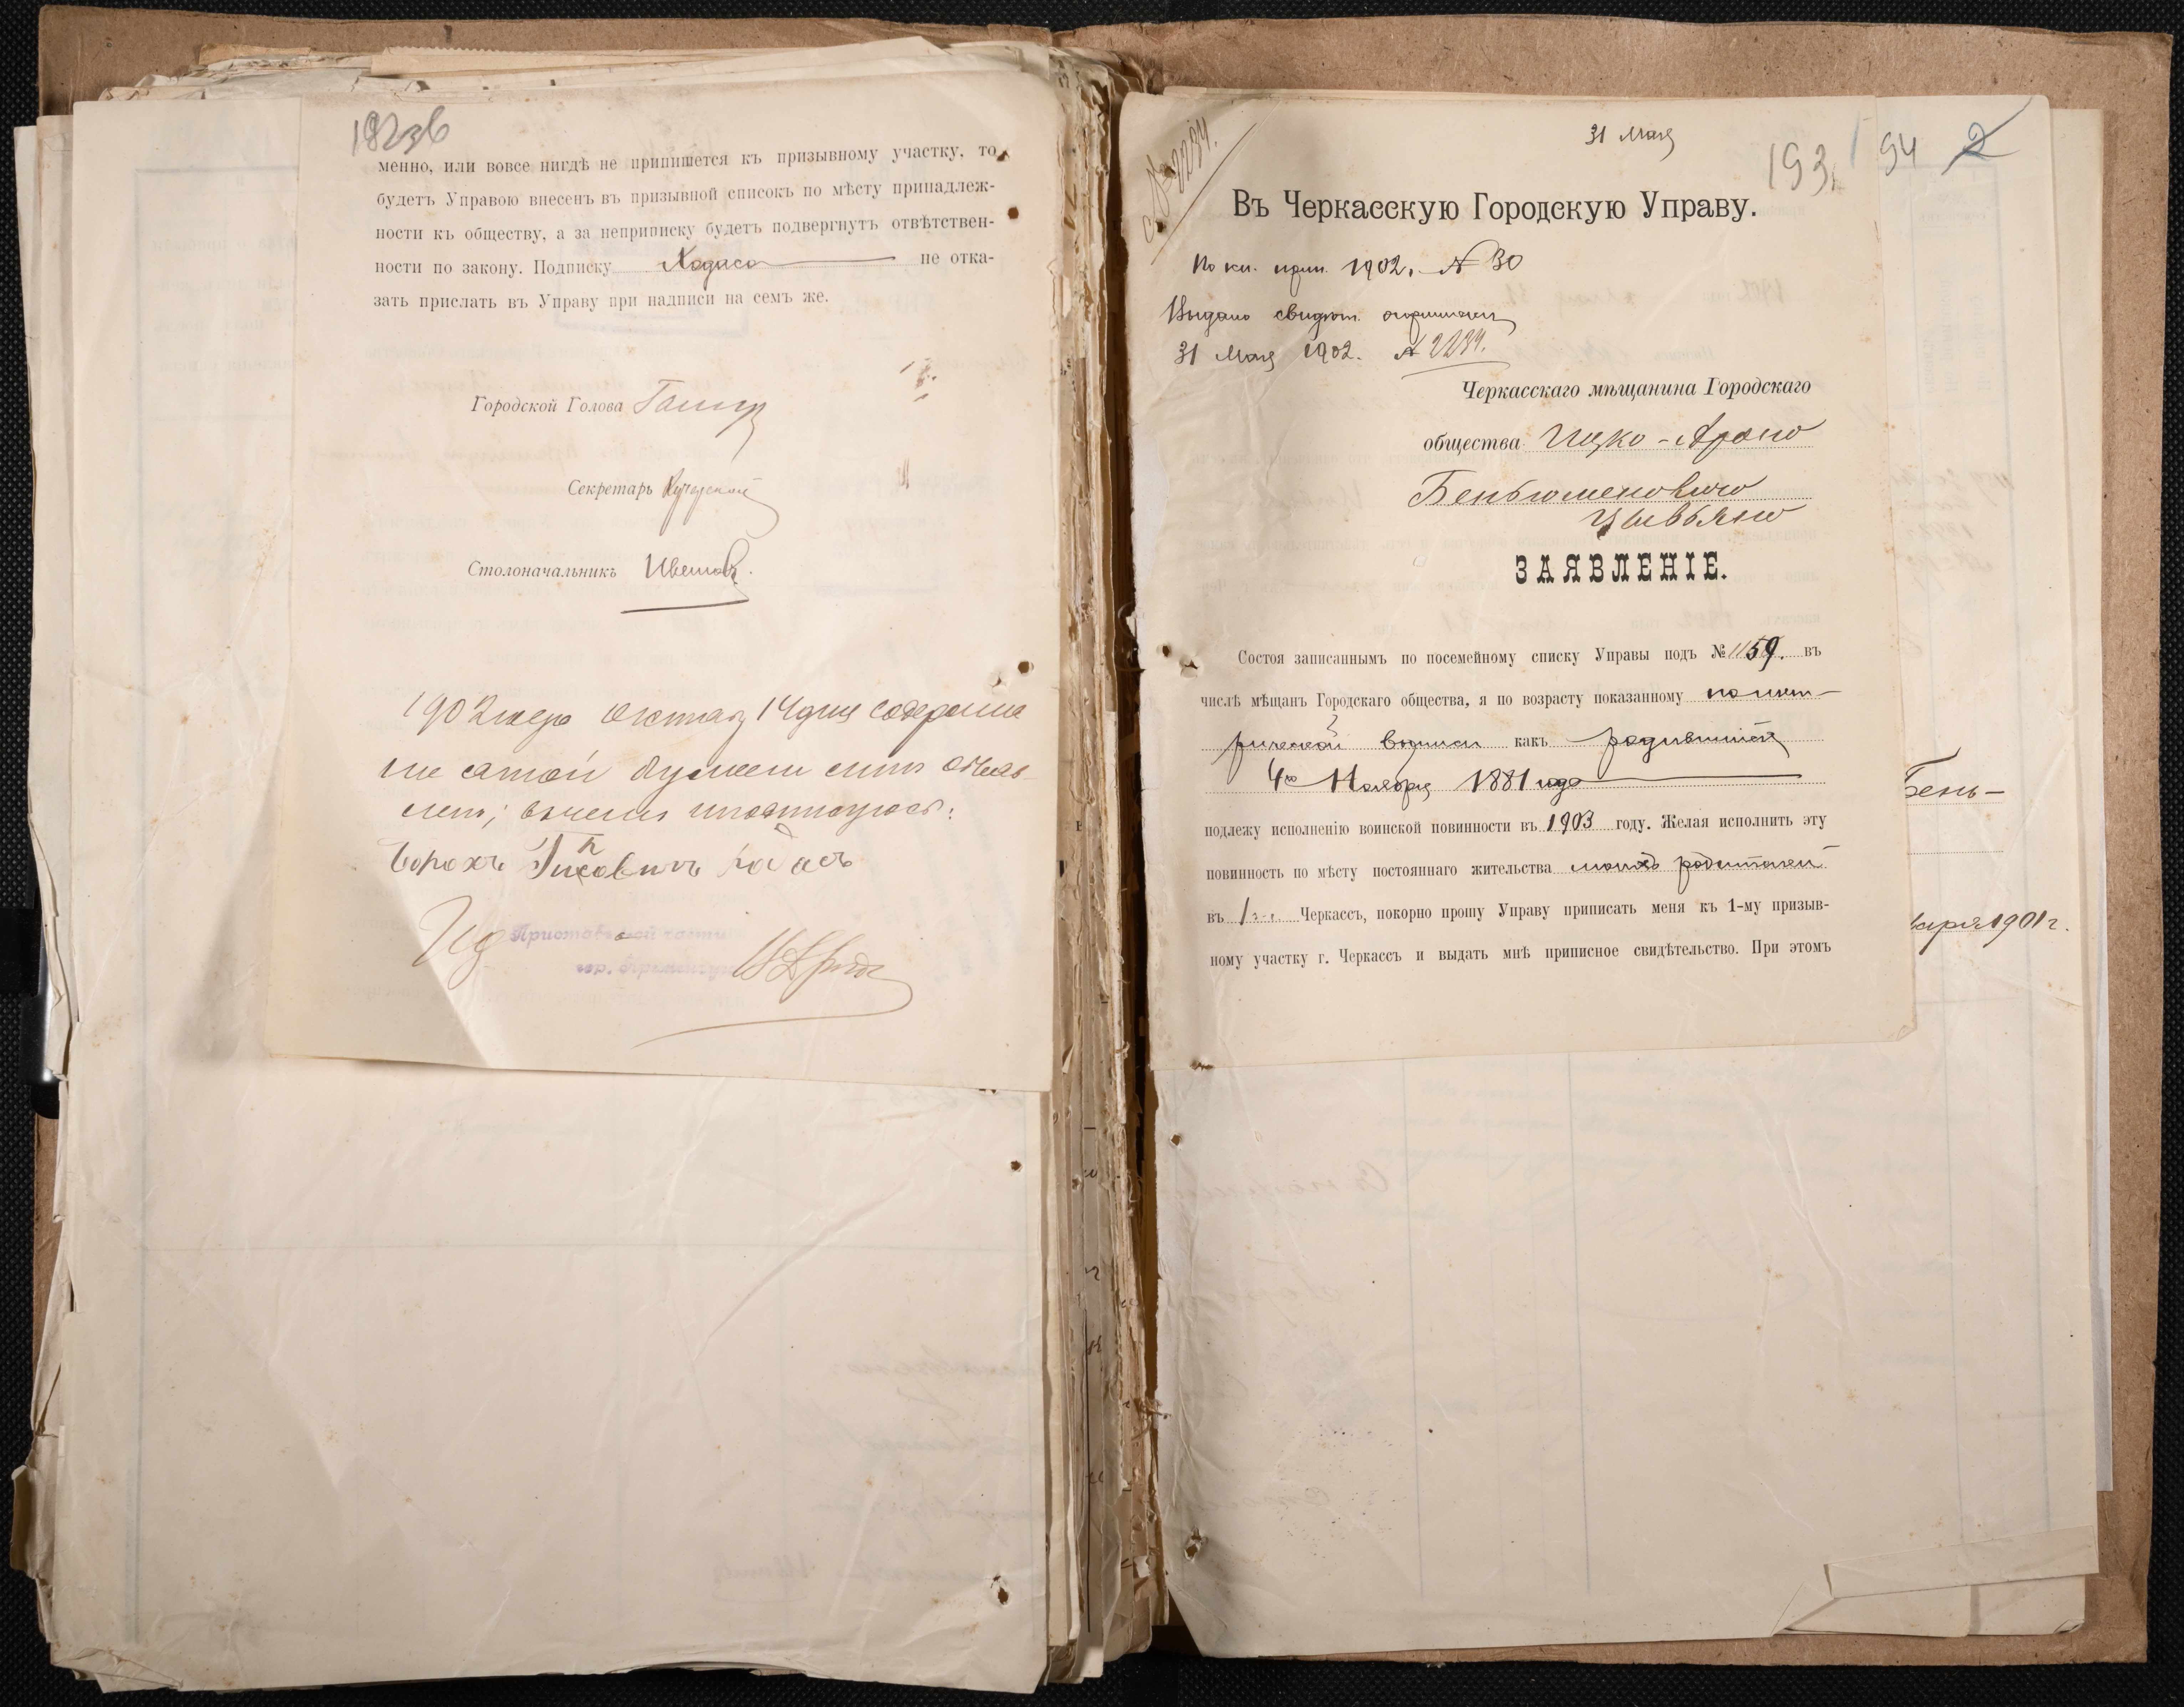 менно, или вовсе нигдѣ не припишется къ призывному участку, то
будетъ Управою внесенъ въ призывной списокъ по мѣсту принадлеж-
ности къ обществу, а за неприписку будетъ подвергнутъ отвѣтствен-
ности по закону. Подписку Хадиса не отка-
зать прислать въ Управу при надписи на семъ же.
Городской Голова
Секретарь
Столоначальникъ
1902 года 14 дня содержа
ние
Борохъ Хадасъ
31 Мая
193
94 2
№ 2234.
Въ Черкасскую Городскую Управу.
По кн. прип. 1902. № 30
Выдано свидѣт. о приписки
31 Мая 1902. № 2234.
Черкасскаго мѣщанина Городскаго
общества Ицко-Арона
Беньюменовича
Цывьяна
ЗАЯВЛЕНІЕ.
Состоя записаннымъ по посемейному списку Управы подъ № 1159. въ
числѣ мѣщанъ Городскаго общества, я по возрасту показанному по мет-
рической выписи какъ родившійся
4го Ноября 1881 года
подлежу исполненію воинской повинности въ 1903 году. Желая исполнить эту
повинность по мѣсту постояннаго жительства моихъ родителей
въ г. Черкассъ, покорно прошу Управу приписать меня къ 1-му призыв-
ному участку г. Черкассъ и выдать мнѣ приписное свидѣтельство. При этомъ
Бень-
варя 1901 г.